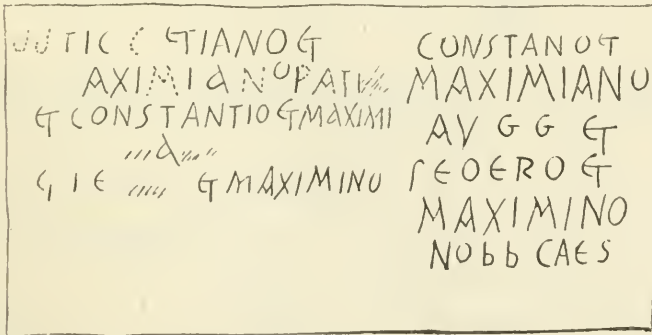 TIANO ET
AXIMIANO PATI
ET CONSTANTIO ET MAXIMI
A
ET MAXIMINO
CONSTANO ET
MAXIMIANO
AVGG ET
SEOERO ET
MAXIMINO
NOBB CAES